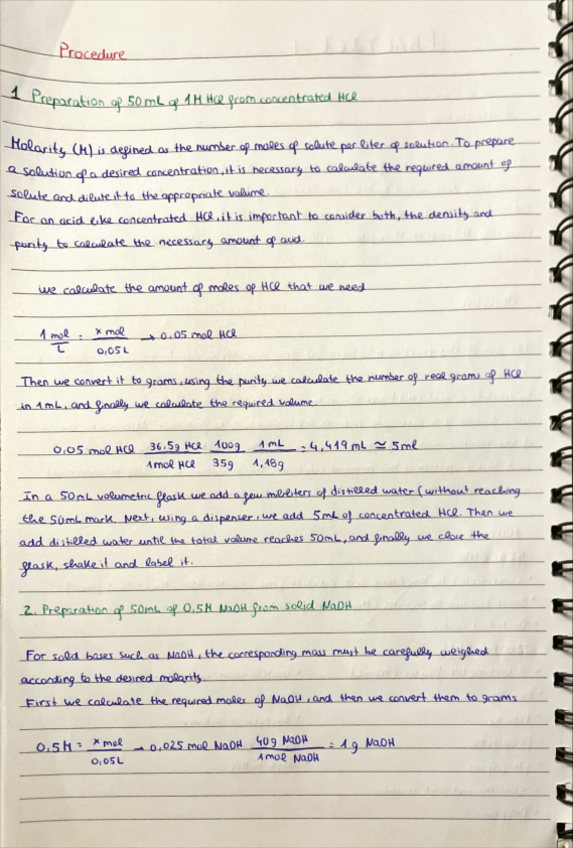 Procedure
1 Preparation of 50mL of 1M HCl from concentrated HCl
Molarity (M) is defined as the number of moles of solute per liter of solution. To prepare
a solution of a desired concentration, it is necessary to calculate the required amount of
solute and dilute it to the appropriate volume.
For an acid like concentrated HCl, it is important to consider both, the density and
purity to calculate the necessary amount of acid.
we calculate the amount of moles of HCl that we need
1 mol/L = x mol/0,05L → 0.05 mol HCl
Then we convert it to grams, using the purity we calculate the number of real grams of HCl
in 1mL, and finally we calculate the required volume.
0,05 mol HCl 36,5g HCl/1mol HCl 100g/35g 1mL/1,18g = 4,419 mL ≃ 5ml
In a 50mL volumetric flask we add a few mililiters of distilled water (without reaching
the 50mL mark. Next, using a dispenser, we add 5mL of concentrated HCl. Then we
add distilled water until the total volume reaches 50mL, and finally we close the
flask, shake it and label it.
2. Preparation of 50mL of 0.5M NaOH from solid NaOH
For solid bases such as NaOH, the corresponding mass must be carefully weighed
according to the desired molarity.
First we calculate the required moles of NaOH, and then we convert them to grams
0,5M = x mol/0,05L → 0.025 mol NaOH 40g NaOH/1mol NaOH = 1g NaOH